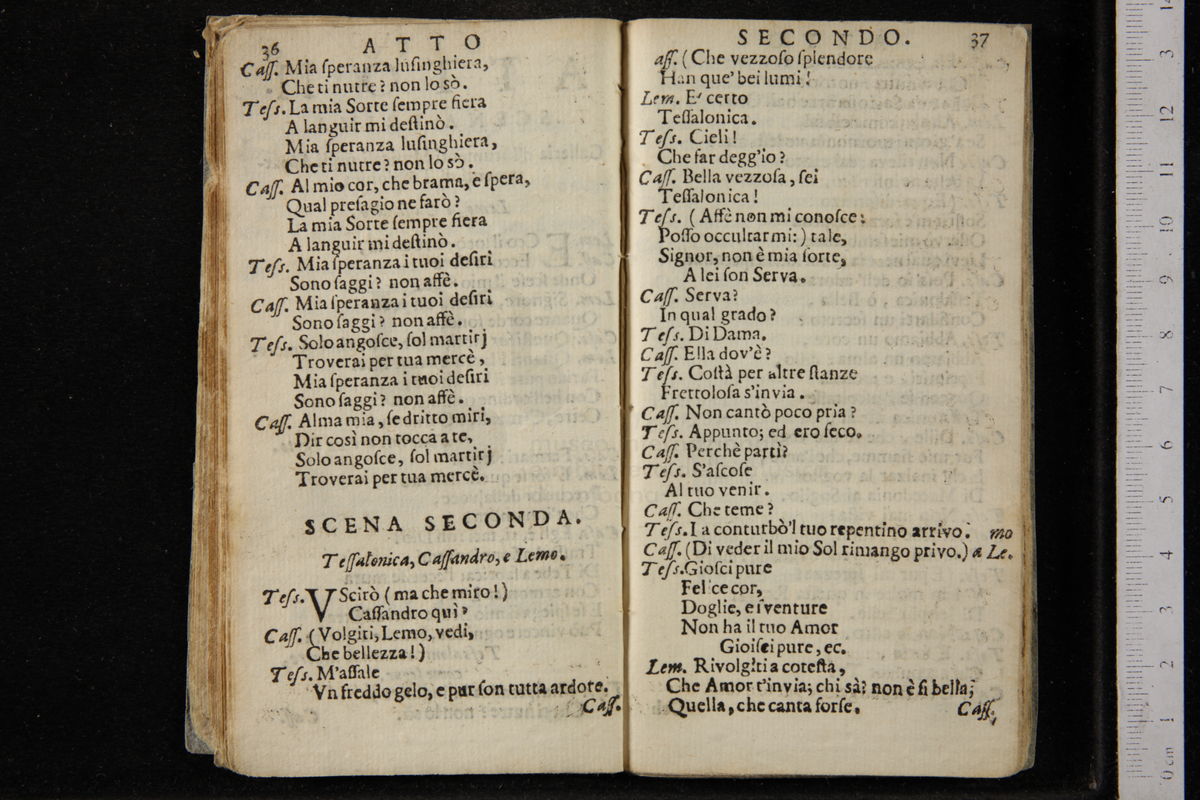 36 ATTO
Caſſ. Mia ſperanza luſinghiera,
Che ti nutre? non lo sò.
Teſs. La mia Sorte ſempre fiera
A languir mi deſtinò.
Mia ſperanza luſinghiera,
Che ti nutre? non lo sò.
Caſſ. Al mio cor, che brama, e ſpera,
Qual preſagio ne farò?
La mia Sorte ſempre fiera
A languir mi deſtinò.
Teſs. Mia ſperanza i tuoi deſiri
Sono ſaggi? non affè.
Caſſ. Mia ſperanza i tuoi deſiri
Sono ſaggi? non affè.
Teſs. Solo angoſce, ſol martirj
Troverai per tua mercè,
Mia ſperanza i tuoi deſiri
Sono ſaggi? non affè.
Caſſ. Alma mia, ſe dritto miri,
Dir così non tocca a te,
Solo angoſce, ſol martirj
Troverai per tua mercè.
SCENA SECONDA.
Teſſalonica, Caſſandro, e Lemo.
Teſs. VScirò (ma che miro!)
Caſſandro quì?
Caſſ. (Volgiti, Lemo, vedi,
Che bellezza!)
Teſs. M'aſſale
Vn freddo gelo, e pur ſon tutta ardore.
Caſſ.
SECONDO. 37
aſſ. (Che vezzoſo ſplendore
Han que' bei lumi!
Lem. E' certo
Teſſalonica.
Teſs. Cieli!
Che far degg'io?
Caſſ. Bella vezzoſa, ſei
Teſſalonica!
Teſs. (Affè non mi conoſce:
Poſſo occultarmi:) tale,
Signor, non è mia ſorte,
A lei ſon Serva.
Caſſ. Serva?
In qual grado?
Teſs. Di Dama.
Caſſ. Ella dov'è?
Teſs. Coſtà per altre ſtanze
Frettoloſa s'invia.
Caſſ. Non cantò poco pria?
Teſs. Appunto; ed ero ſeco.
Caſſ. Perchè partì?
Teſs. S'aſcoſe
Al tuo venir.
Caſſ. Che teme?
Teſs. La conturbò'l tuo repentino arrivo. mo
Caſſ. (Di veder il mio Sol rimango privo.) a Le.
Teſs. Gioſci pure
Felice cor,
Doglie, e ſventure
Non ha il tuo Amor
Gioiſci pure, ec.
Lem. Rivolgiti a coteſta,
Che Amor t'invia; chi sà? non è ſi bella;
Quella, che canta forſe.
Caſſ.